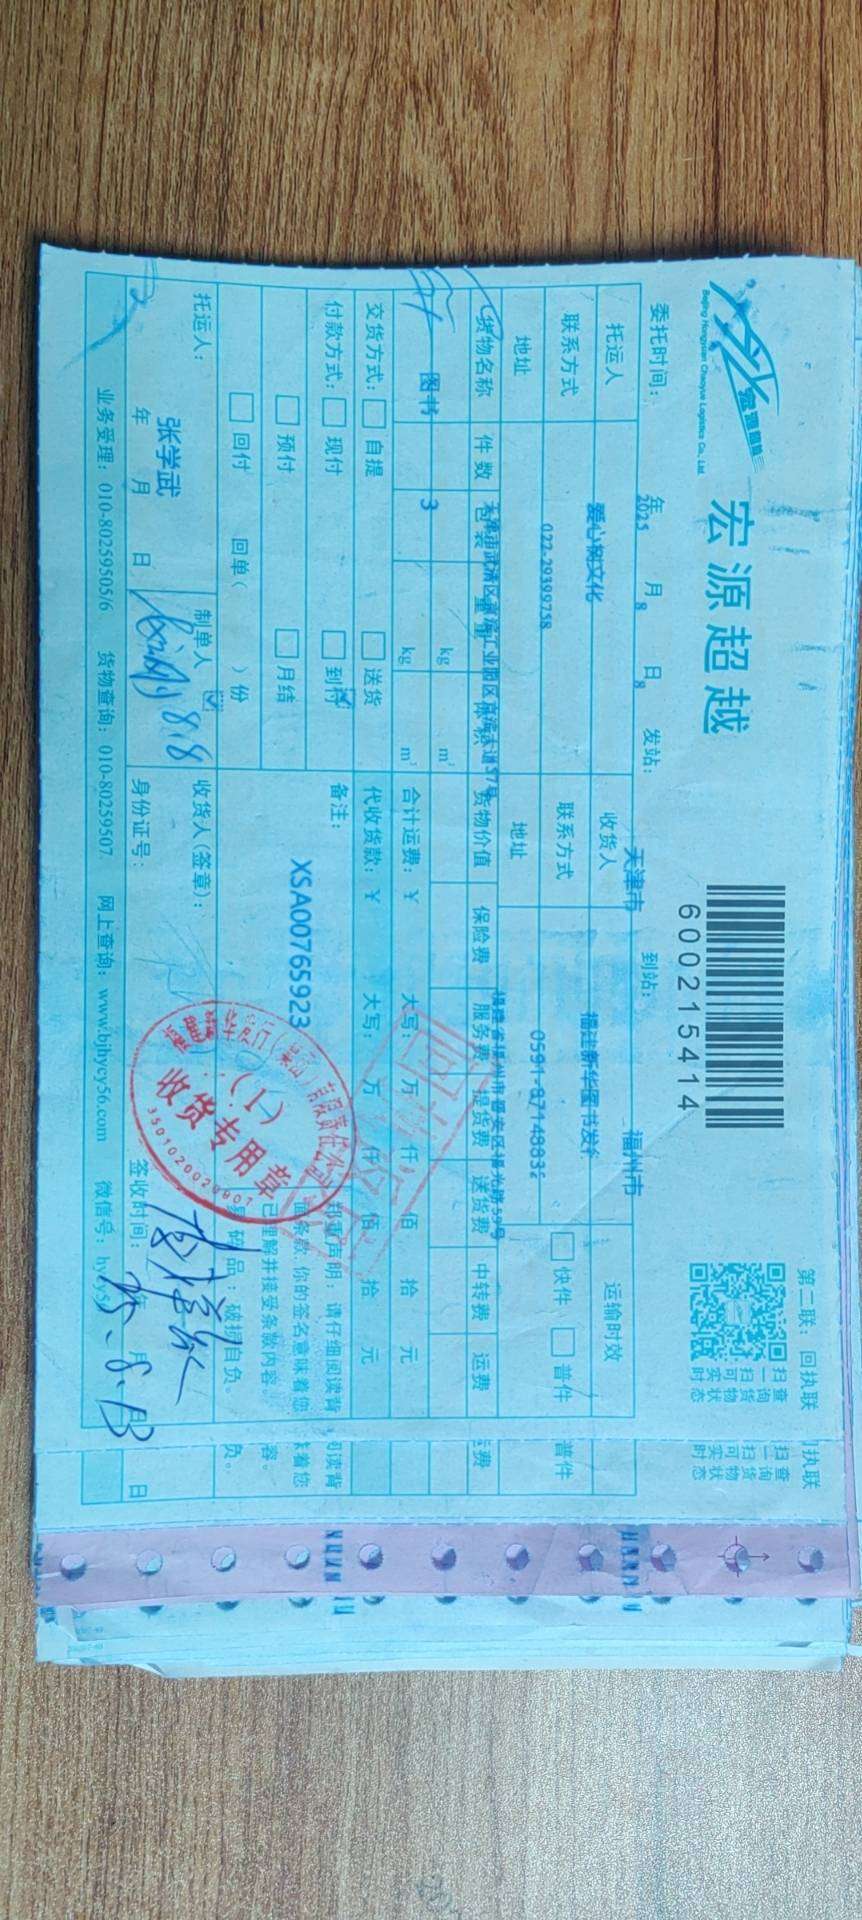 宏源超越
Beijing Hongyuan Chaoyue Logistics Co., Ltd.
600215414
第二联：回执联
扫一扫可实时
查询货物状态
委托时间： 2025 年 8 月 8 日 发站： 天津市 到站： 福州市
托运人 爱心树文化 收货人 福建新华图书发
运输时效
联系方式 022-29399758 联系方式 0591-8714883
快件 普件
地址 天津市武清区 工业园区京滨大道57号 地址 福建省福州市晋安区福光路59号
货物名称 件数 包装 重量 体积 货物价值 保险费 服务费 提货费 送货费 中转费 运费
kg m³
图书 3 kg m³ 合计运费：¥ 大写： 万 仟 佰 拾 元
交货方式： 自提 送货 代收货款：¥ 大写： 万 仟 佰 拾 元
付款方式： 现付 到付 备注：
预付 月结
回付 回单( )份
XSA00765923
郑重声明：请仔细阅读背
面条款，你的签名意味着您
已理解并接受条款内容。
易碎品：破损自负。
托运人： 张学武
年 月 日
制单人
8.8
收货人(签章)：
身份证号：
签收时间： 年 月 日
25.8.13
收货专用章
(1)
3501020020901
业务受理：010-80259505/6 货物查询：010-80259507 网上查询：www.bjhycy56.com 微信号：hycy5